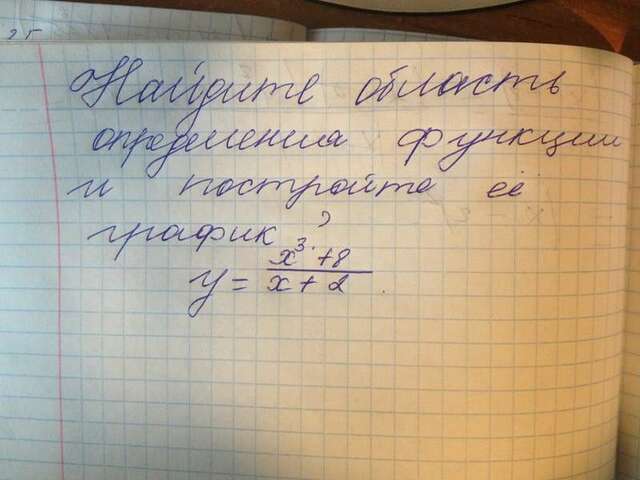 25
Найдите область
определения функции
и постройте её
график
y = x³+8 / x+2.